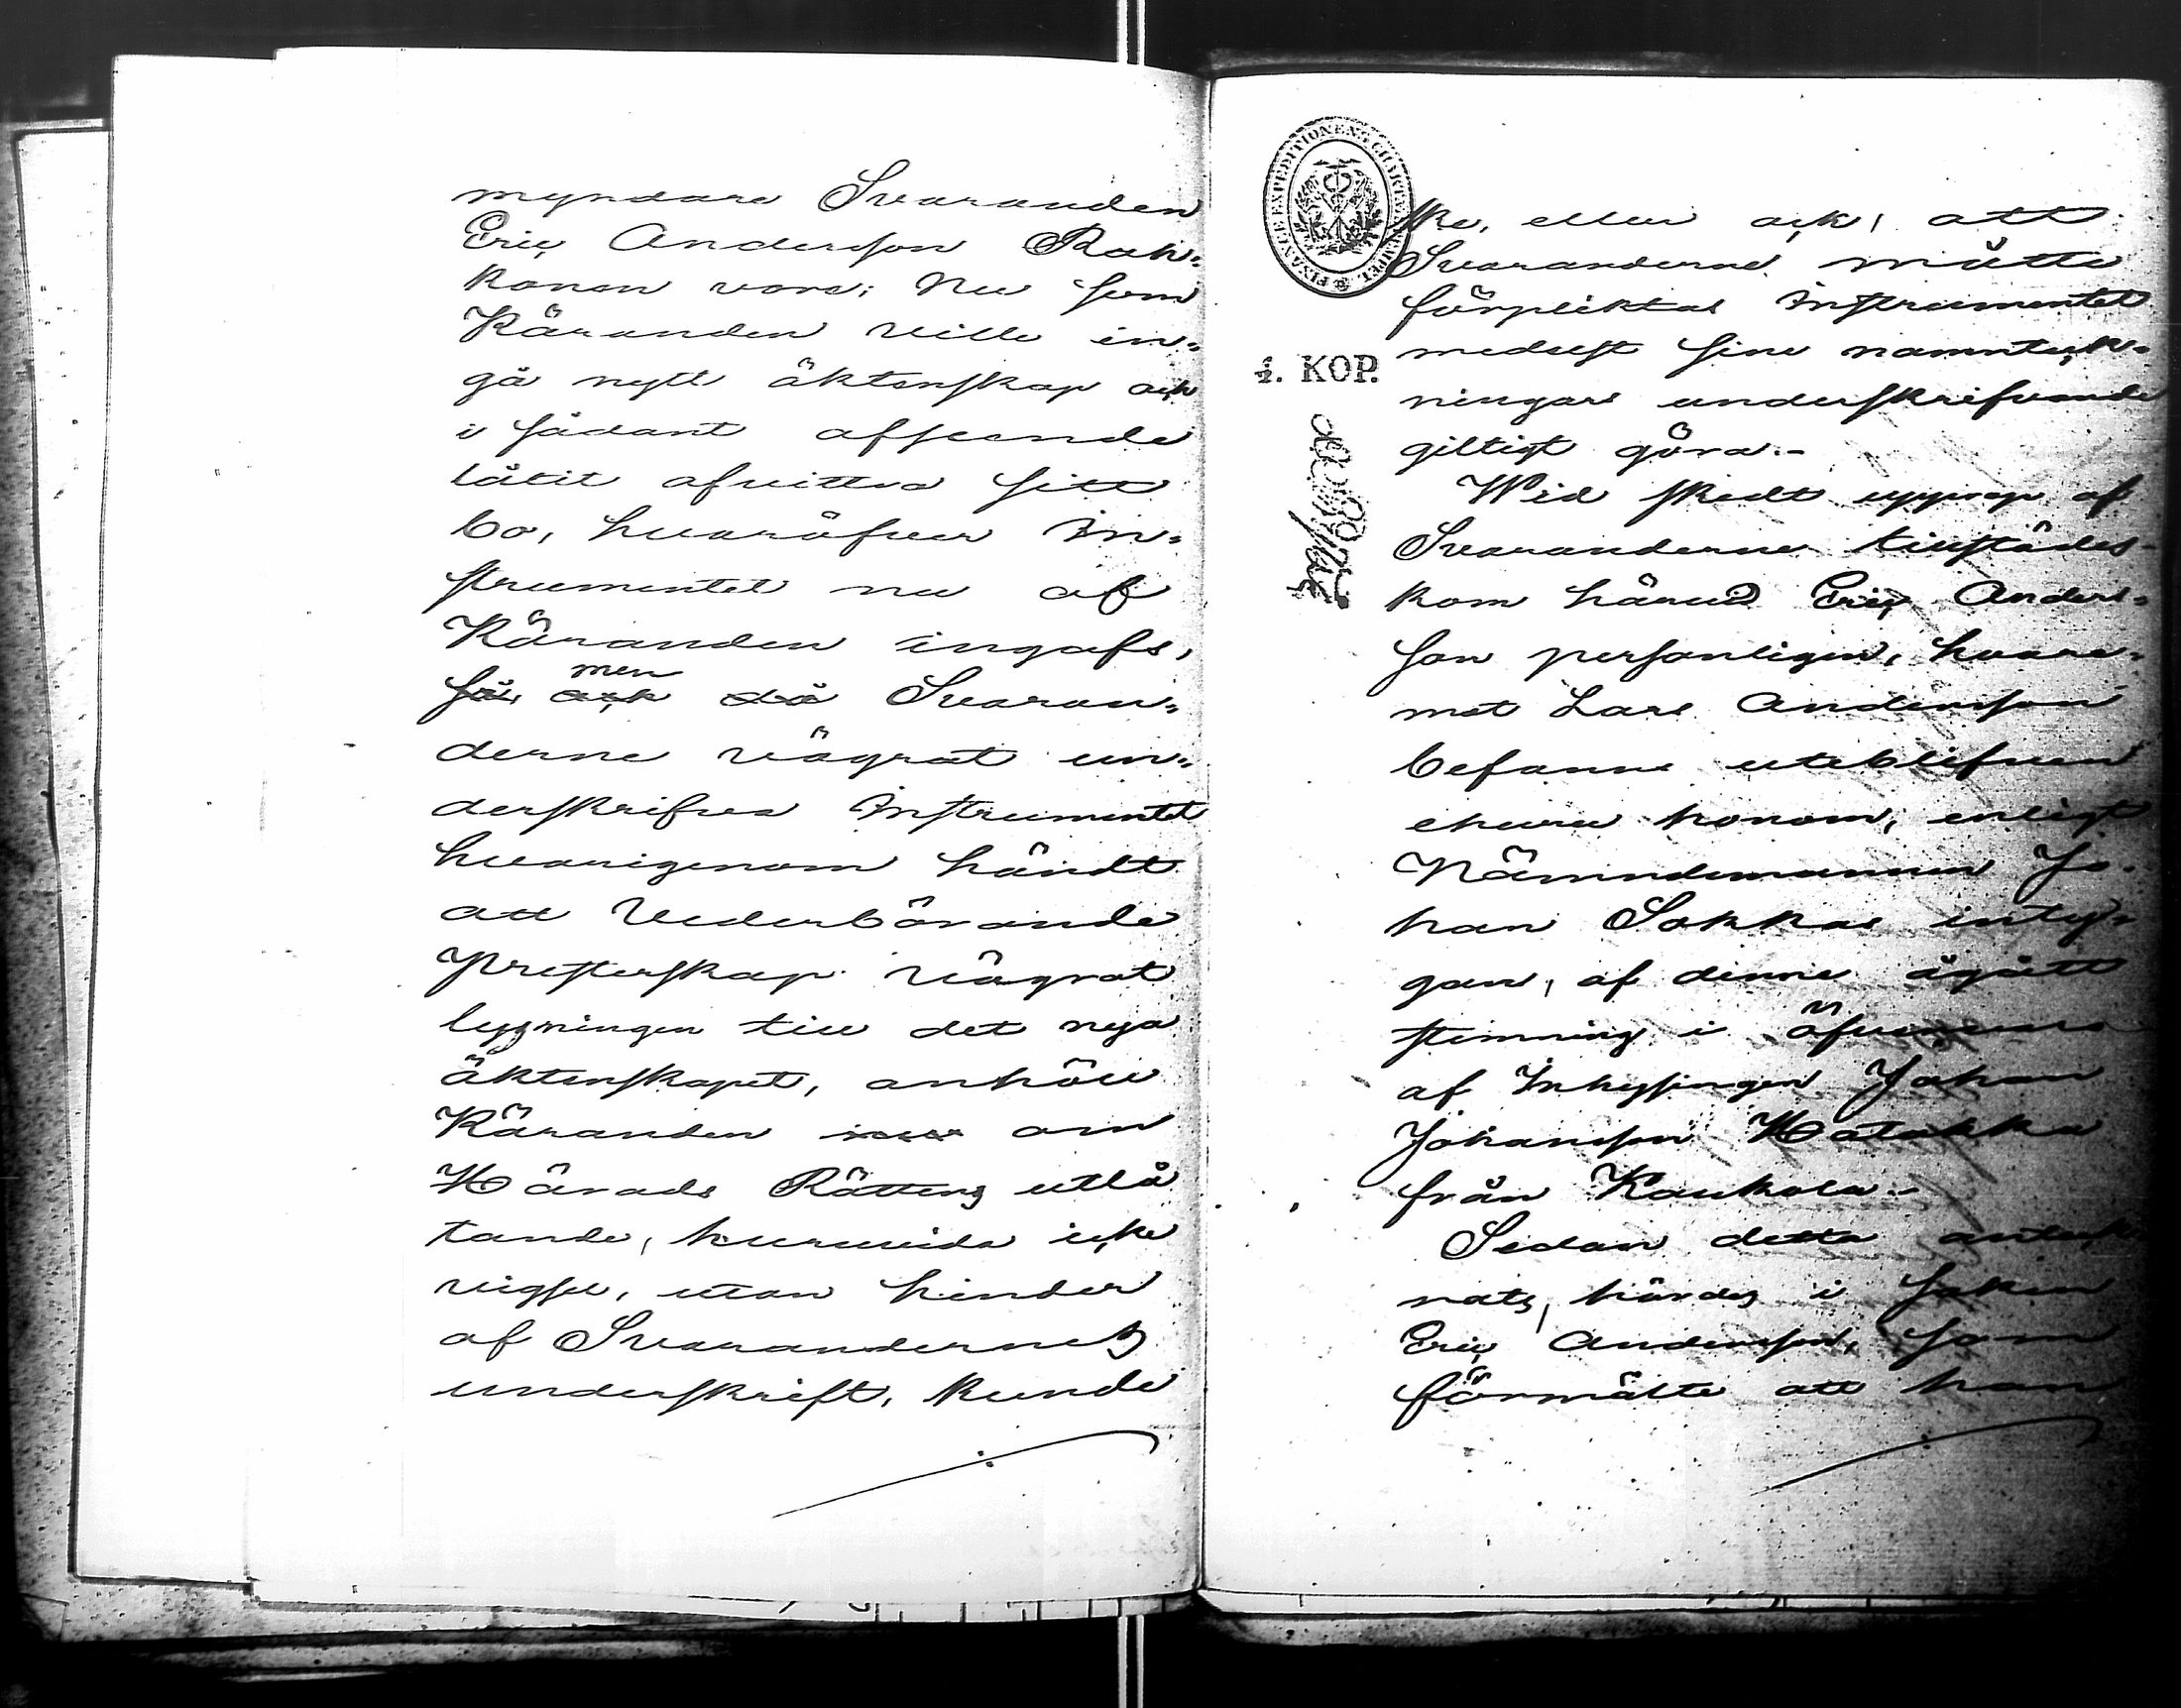 myndare Svaranden
Eric Andersson Rah=
konen vore; Nu som
Käranden ville in=
gå nytt äktenskap och
i sådant afseende
låtit afvittra sitt
bo, hvaröfver In=
strumentet nu af
Käranden ingafs,
så, men och då Svaran=
derne vägrat un=
derskrifva Instrumentet
hvarigenom händt
att Vederbörande
Presterskap vägrat
lysningen till det nya
äktenskapet, anhöll
Käranden om
Härads Rättens utlå
tande, huruvida icke
vigsel, utan hinder
af Svarandernes
underskrift, kunde
FINANCE EXPEDITIONENS CHARTÆ STEMPEL
½. KOP.
ske, eller ock, att
Svaranderne måtte
förpliktas Instrumentet
medelst sine namnteck=
ningars underskrifvande
giltigt göra.-
Wid skedt upprop af
Svaranderne tillstädes-
kom härvid Eric Anders=
son personligen, hvare=
mot Lars Andersson
befanns utebliven
ehuru honom, enligt
Nämndemannen Jo=
han Sokkas inty=
gan, af denne ågått
stemning i öfvervara
af Inhysingen Johan
Johansson Hatakka
från Kaukola.-
Sedan detta anteck
nats, hördes i saken
Eric Andersson, som
förmälte att han